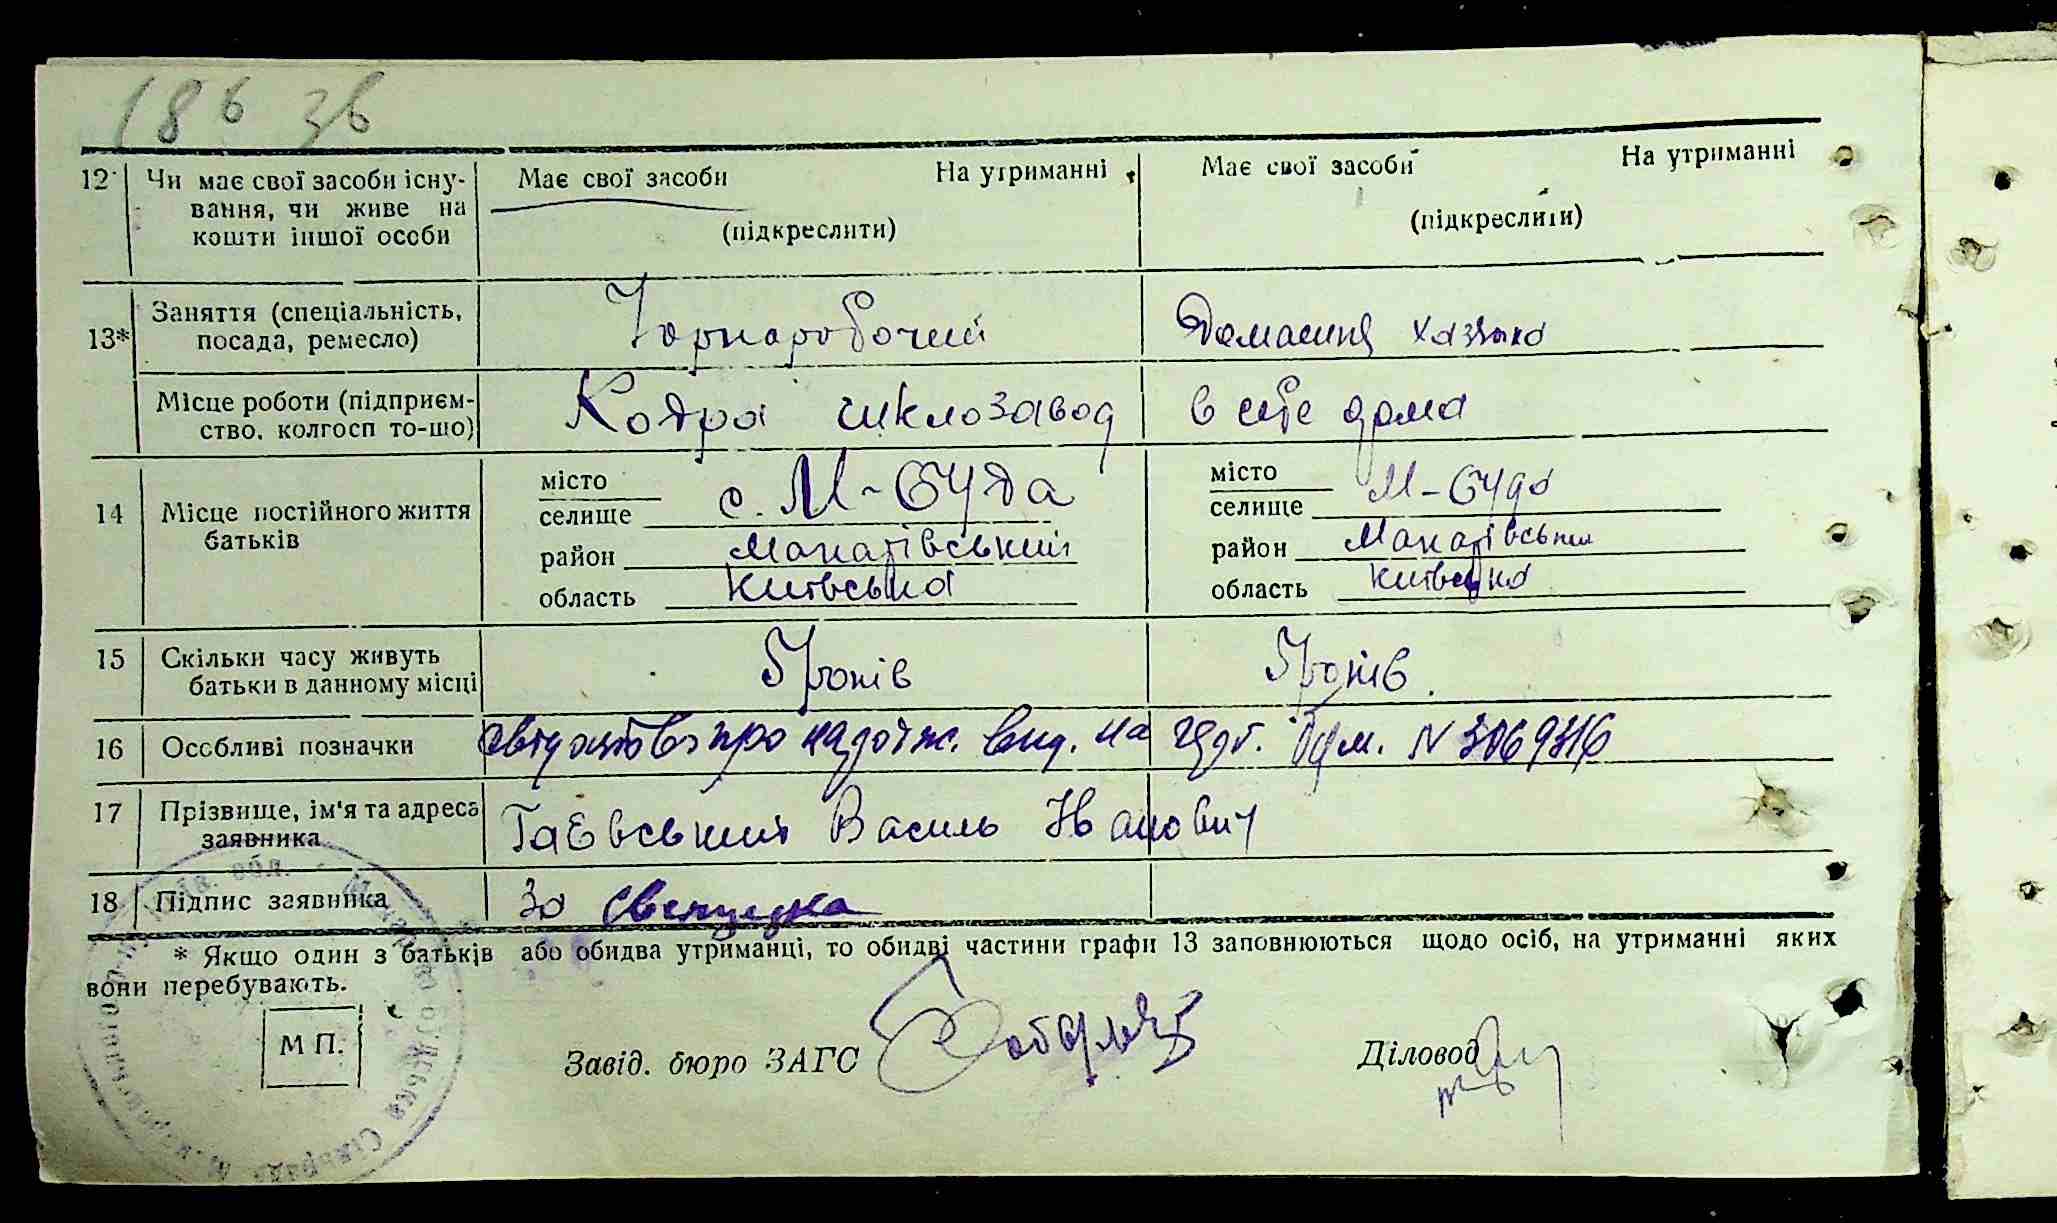 186 зв
12 Чи має свої засоби існу- Має свої засоби На утриманні Має свої засоби На утриманні
вання, чи живе на
кошти іншої особи (підкреслити) (підкреслити)
13* Заняття (спеціальність, Чорноробочий Домашня хазяйка
посада, ремесло)
Місце роботи (підприєм- Кодра склозавод в себе дома
ство, колгосп то-що)
14 Місце постійного життя батьків
місто
селище с. М-Буда
район Макарівський
область Київська
місто
селище М-Буда
район Макарівський
область Київська
15 Скільки часу живуть років років
батьки в данному місці
16 Особливі позначки про вид. на N 3069316
17 Прізвище, ім'я та адреса Гаєвський Василь Іванович
заявника
18 Підпис заявника За
* Якщо один з батьків або обидва утриманці, то обидві частини графи 13 заповнюються щодо осіб, на утриманні яких
вони перебувають.
М П. Завід. бюро ЗАГС Діловод